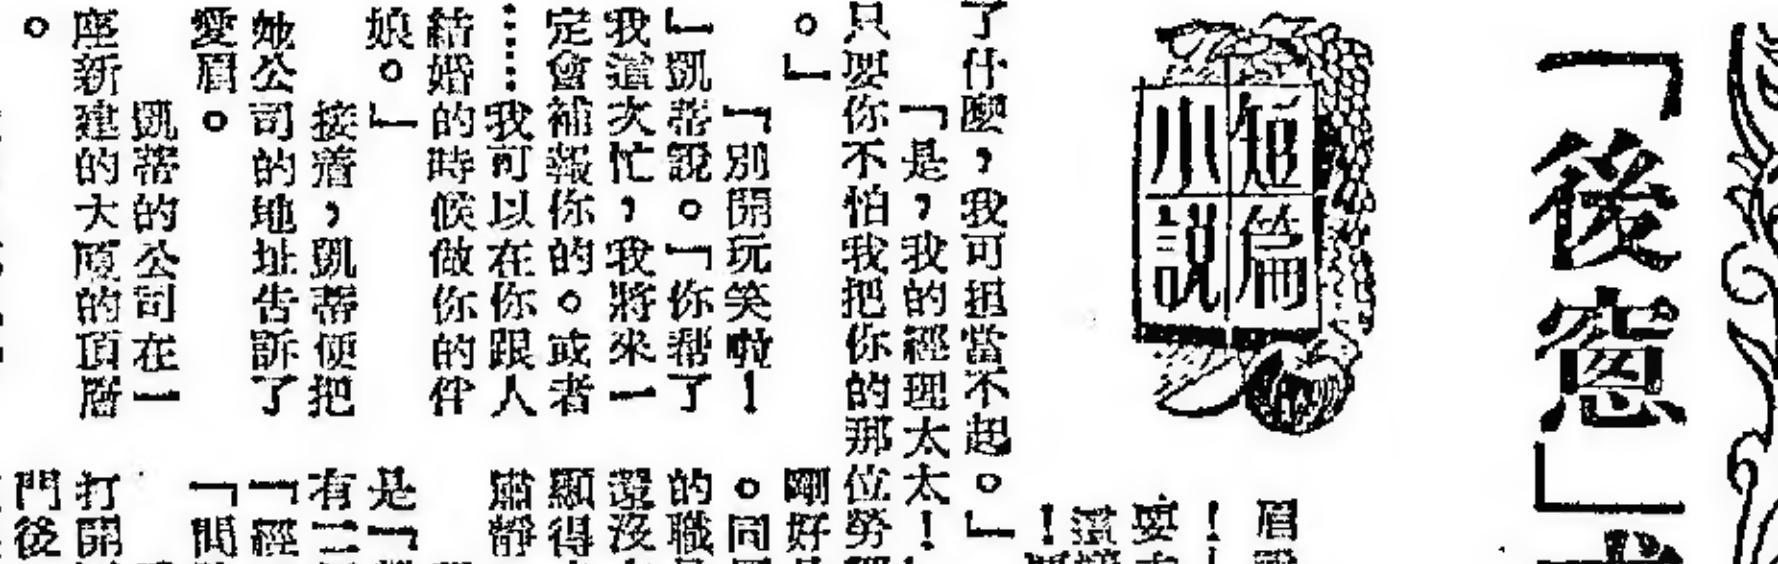 「後窻」
短篇
小説
了什麼，我可担當不起。」
「是，我的經理太太！
只要你不怕我把你的那位勞
。」
「別開玩笑啦！
」凱蒂說。「你幫了
我這次忙，我將來一
定會補報你的。或者
……我可以在你跟人
結婚的時候做你的伴
娘。」
接着，凱蒂便把
她公司的地址告訴了
愛眉。
凱蒂的公司在一
座新建的大厦的頂層
。
眉
！
要
！
剛好
。同
的職
還沒
顯得
肅靜
是「
有二
「經
「間
打開
門後